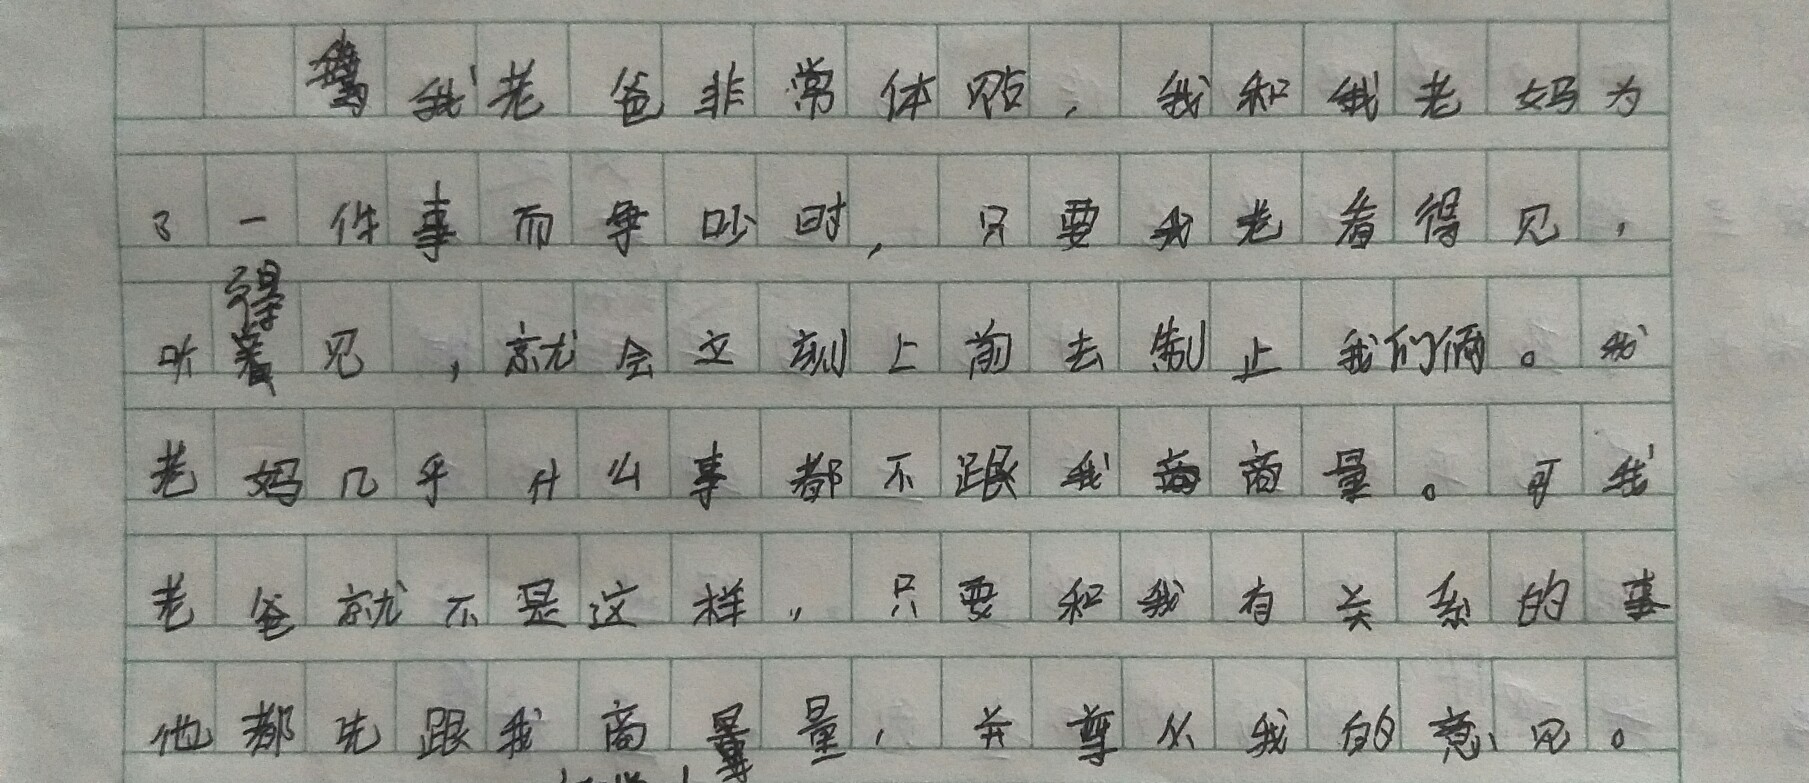 我老爸非常体贴，我和我老妈为
了一件事而争吵时，只要我老看得见，
听得见，就会立刻上前去制止我们俩。我
老妈几乎什么事都不跟我商量。可我
老爸就不是这样，只要和我有关系的事
他都先跟我商量，并尊从我的意见。